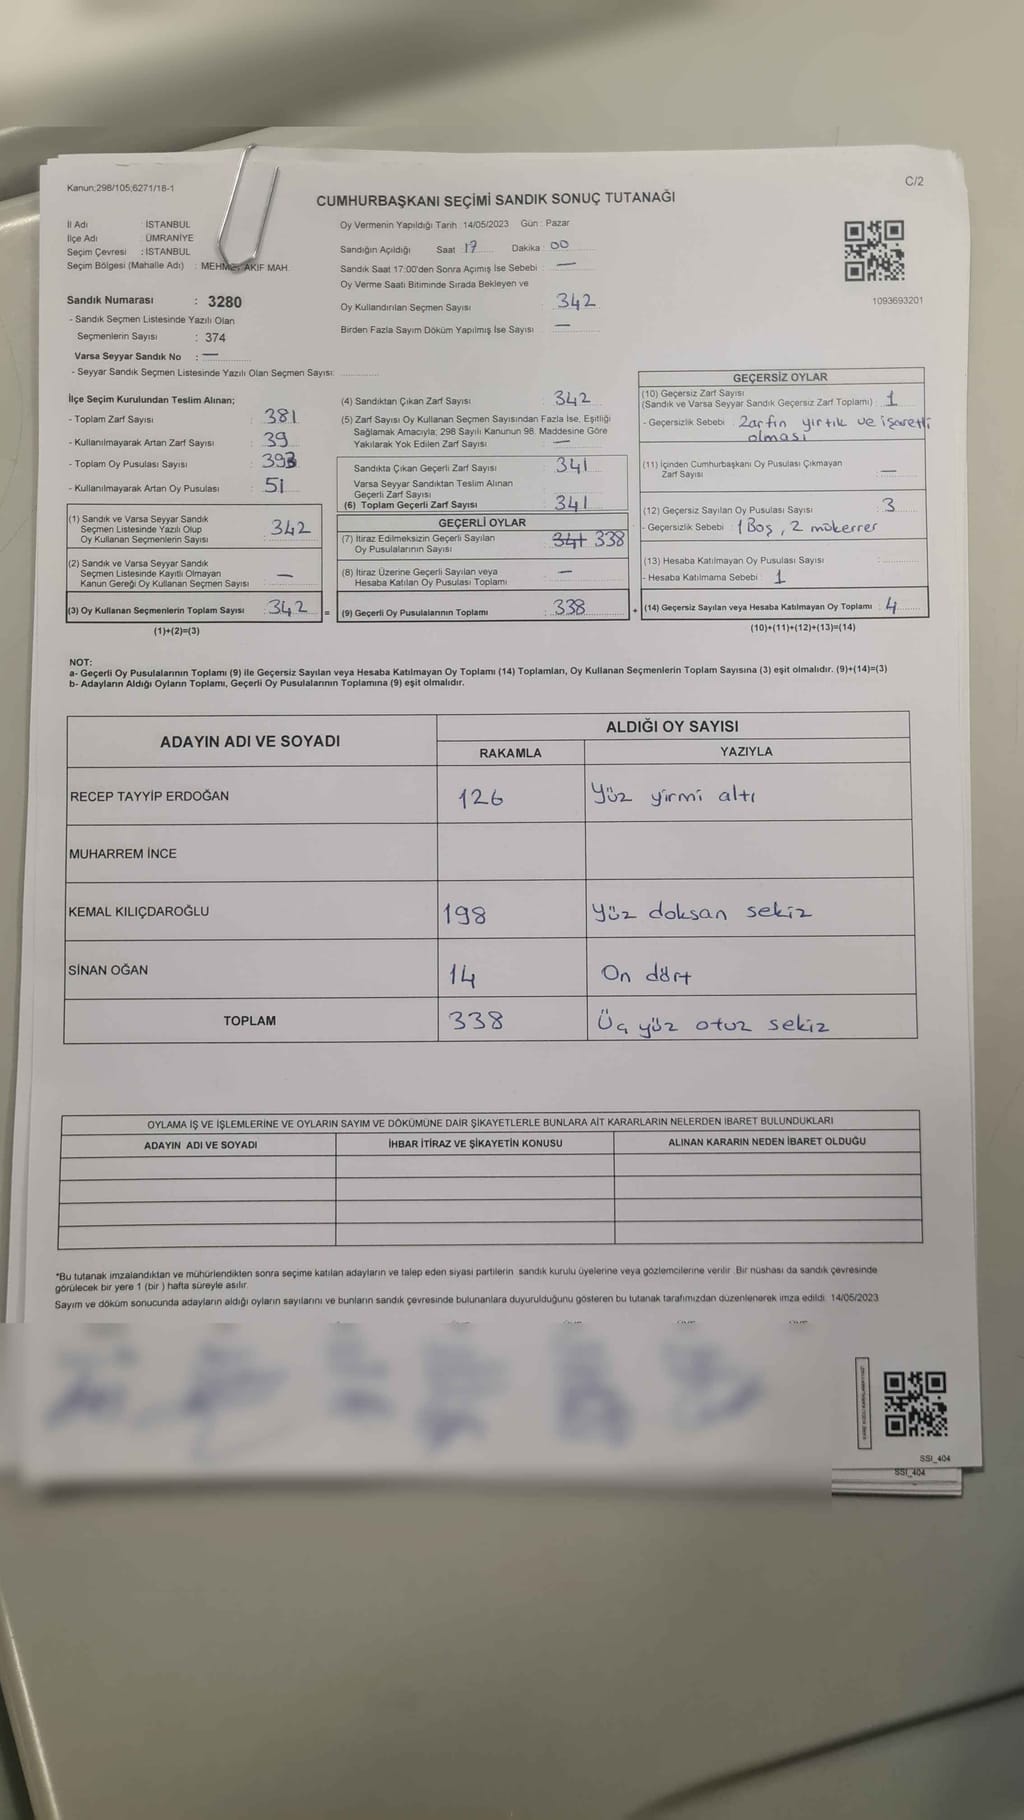 Kanun;298/105;6271/18-1
C/2
CUMHURBAŞKANI SEÇİMİ SANDIK SONUÇ TUTANAĞI
İl Adı : İSTANBUL
İlçe Adı : ÜMRANİYE
Seçim Çevresi : İSTANBUL
Seçim Bölgesi (Mahalle Adı) : MEHMET AKİF MAH.
Sandık Numarası : 3280
- Sandık Seçmen Listesinde Yazılı Olan
Seçmenlerin Sayısı : 374
Varsa Seyyar Sandık No : —
- Seyyar Sandık Seçmen Listesinde Yazılı Olan Seçmen Sayısı:
Oy Vermenin Yapıldığı Tarih : 14/05/2023 Gün : Pazar
Sandığın Açıldığı Saat 17 Dakika : 00
Sandık Saat 17:00'den Sonra Açımış İse Sebebi : —
Oy Verme Saati Bitiminde Sırada Bekleyen ve
Oy Kullandırılan Seçmen Sayısı : 342
Birden Fazla Sayım Döküm Yapılmış İse Sayısı : —
1093693201
İlçe Seçim Kurulundan Teslim Alınan;
- Toplam Zarf Sayısı : 381
- Kullanılmayarak Artan Zarf Sayısı : 39
- Toplam Oy Pusulası Sayısı : 393
- Kullanılmayarak Artan Oy Pusulası : 51
(1) Sandık ve Varsa Seyyar Sandık
Seçmen Listesinde Yazılı Olup
Oy Kullanan Seçmenlerin Sayısı : 342
(2) Sandık ve Varsa Seyyar Sandık
Seçmen Listesinde Kayıtlı Olmayan
Kanun Gereği Oy Kullanan Seçmen Sayısı : —
(3) Oy Kullanan Seçmenlerin Toplam Sayısı : 342 =
(1)+(2)=(3)
(4) Sandıktan Çıkan Zarf Sayısı : 342
(5) Zarf Sayısı Oy Kullanan Seçmen Sayısından Fazla İse, Eşitliği
Sağlamak Amacıyla; 298 Sayılı Kanunun 98. Maddesine Göre
Yakılarak Yok Edilen Zarf Sayısı : —
Sandıkta Çıkan Geçerli Zarf Sayısı : 341
Varsa Seyyar Sandıktan Teslim Alınan
Geçerli Zarf Sayısı
(6) Toplam Geçerli Zarf Sayısı : 341
GEÇERLİ OYLAR
(7) İtiraz Edilmeksizin Geçerli Sayılan
Oy Pusulalarının Sayısı : 341 338
(8) İtiraz Üzerine Geçerli Sayılan veya
Hesaba Katılan Oy Pusulası Toplamı : —
(9) Geçerli Oy Pusulalarının Toplamı : 338 +
GEÇERSİZ OYLAR
(10) Geçersiz Zarf Sayısı
(Sandık ve Varsa Seyyar Sandık Geçersiz Zarf Toplamı) : 1
- Geçersizlik Sebebi : Zarfın yırtık ve işaretli
olması
(11) İçinden Cumhurbaşkanı Oy Pusulası Çıkmayan
Zarf Sayısı : —
(12) Geçersiz Sayılan Oy Pusulası Sayısı : 3
- Geçersizlik Sebebi : 1 Boş, 2 mükerrer
(13) Hesaba Katılmayan Oy Pusulası Sayısı :
- Hesaba Katılmama Sebebi : 1
(14) Geçersiz Sayılan veya Hesaba Katılmayan Oy Toplamı : 4
(10)+(11)+(12)+(13)=(14)
NOT:
a- Geçerli Oy Pusulalarının Toplamı (9) ile Geçersiz Sayılan veya Hesaba Katılmayan Oy Toplamı (14) Toplamları, Oy Kullanan Seçmenlerin Toplam Sayısına (3) eşit olmalıdır. (9)+(14)=(3)
b- Adayların Aldığı Oyların Toplamı, Geçerli Oy Pusulalarının Toplamına (9) eşit olmalıdır.
ADAYIN ADI VE SOYADI
ALDIĞI OY SAYISI
RAKAMLA YAZIYLA
RECEP TAYYİP ERDOĞAN 126 Yüz yirmi altı
MUHARREM İNCE
KEMAL KILIÇDAROĞLU 198 Yüz doksan sekiz
SİNAN OĞAN 14 On dört
TOPLAM 338 Üç yüz otuz sekiz
OYLAMA İŞ VE İŞLEMLERİNE VE OYLARIN SAYIM VE DÖKÜMÜNE DAİR ŞİKAYETLERLE BUNLARA AİT KARARLARIN NELERDEN İBARET BULUNDUKLARI
ADAYIN ADI VE SOYADI İHBAR İTİRAZ VE ŞİKAYETİN KONUSU ALINAN KARARIN NEDEN İBARET OLDUĞU
*Bu tutanak imzalandıktan ve mühürlendikten sonra seçime katılan adayların ve talep eden siyasi partilerin sandık kurulu üyelerine veya gözlemcilerine verilir. Bir nüshası da sandık çevresinde
görülecek bir yere 1 (bir ) hafta süreyle asılır.
Sayım ve döküm sonucunda adayların aldığı oyların sayılarını ve bunların sandık çevresinde bulunanlara duyurulduğunu gösteren bu tutanak tarafımızdan düzenlenerek imza edildi. 14/05/2023
SSI_404
SSI_404